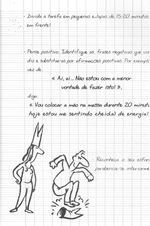 Divida a tarefa em pequenas etapas de 15-20 minutos
em frente!
Pense positivo. Identifique as frases negativas que
e substitua-as por afirmações positivas. Por
vez de:
« Ai, ai... Não estou com a menor
vontade de fazer isto! »,
diga:
« Vou colocar a mão na massa durante 20 minutos
hoje estou me sentindo cheio(a) de energia!
Reconheça o seu